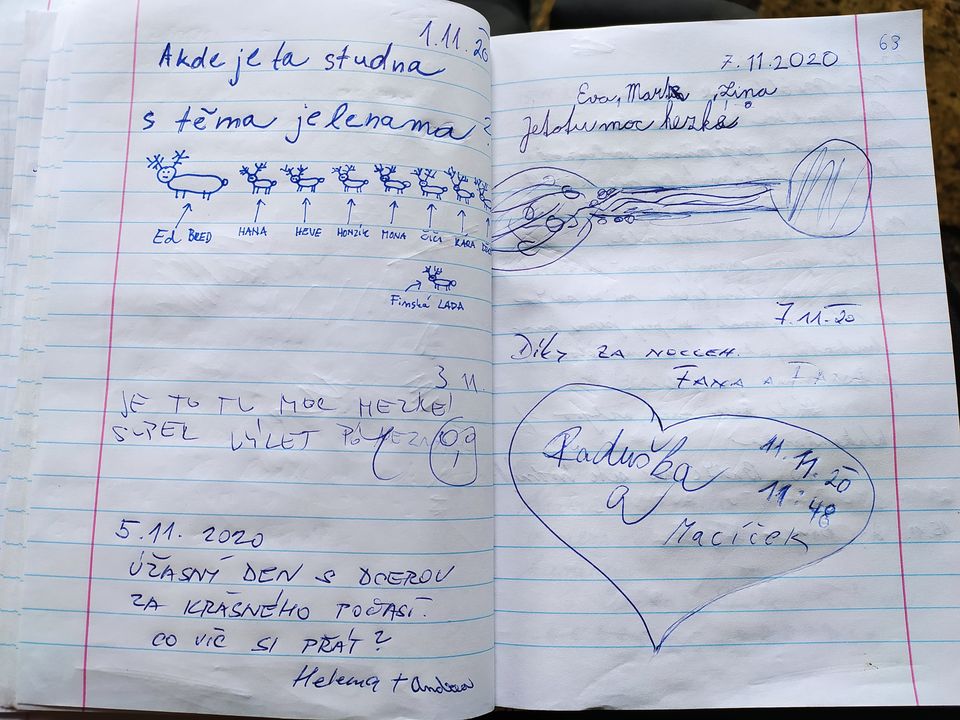 1.11.20
A kde je ta studna
s těma jelenama?
Ed BRED HANA HEVE HONZÍK MONA ČIČI KARA
Finská LADA
3 11.
JE TO TU MOC HEZKÉ!
SUPER VÝLET
5.11. 2020
ÚŽASNÝ DEN S DCEROU
ZA KRÁSNÉHO POČASÍ.
CO VÍC SI PŘÁT?
Helena + Andrea
63
7.11.2020
Eva, Mark, Zina
Je to tu moc hezké
7.11.20
Díky ZA NOCLEH.
FANA A FANA
Raduška
a
Macíček
11.11.20
11:48